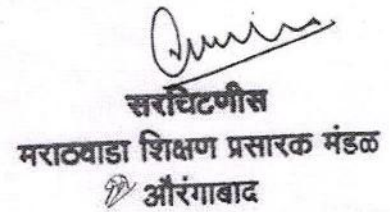 सरचिटणीस
मराठवाडा शिक्षण प्रसारक मंडळ
औरंगाबाद